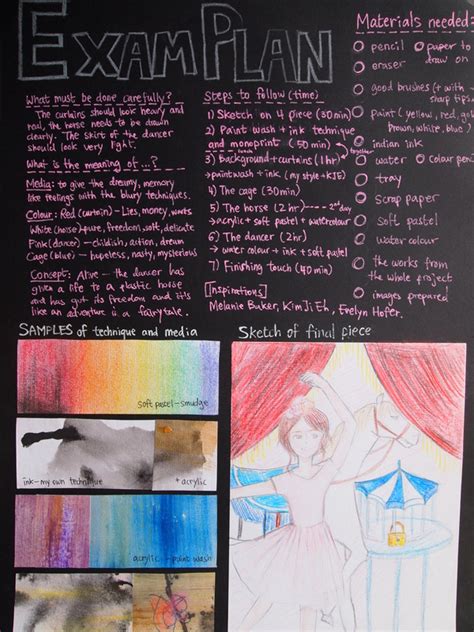 EXAM PLAN
What must be done carefully?
The curtains should look heavy and
real, the horse needs to be drawn
clearly. The skirt of the dancer
should look very light.
What is the meaning of...?
Media: to give the dreamy, memory
like feelings with the blurry techniques.
Colour: Red (curtain) – Lies, money, wants
White (horse) – pure, freedom, soft, delicate
Pink (dancer) – childish, action, dream
Cage (blue) – hopeless, nasty, mysterious
Concept: Alive – the dancer has
given a life to a plastic horse
and has got its freedom and it's
like an adventure is a fairytale.
Steps to follow (time)
1) Sketch on 4 piece (30min)
2) Paint wash + ink technique
and monoprint (50 min)
together
3) Background + curtains (1hr)
→ paint wash + ink (my style – KJE)
4) The cage (30min)
5) The horse (2hr) --- 2nd day
→ acrylic + soft pastel + watercolour
6) The dancer (2hr)
→ water colour + ink + soft pastel
7) Finishing touch (40 min)
[Inspirations]
Melanie Baker, Kim Ji Eh, Evelyn Hofer.
Materials needed:
pencil
paper to
draw on
eraser
good brushes (+ with
sharp tips)
paint (yellow, red,
brown, white, blue)
indian ink
water
colour
tray
scrap paper
soft pastel
water colour
the works from
the whole project
images prepared
SAMPLES of technique and media
soft pastel – smudge
ink – my own technique
+ acrylic
acrylic – paint wash
Sketch of final piece